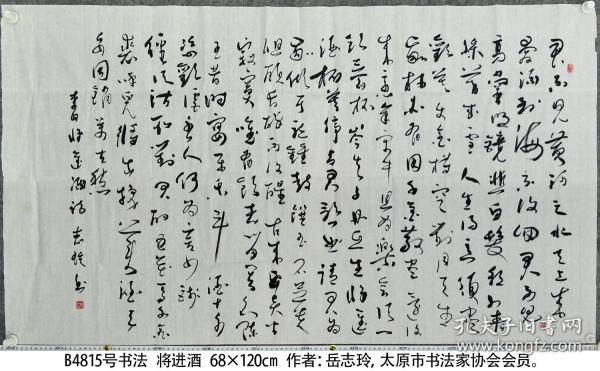 君不见黄河之水天上来
奔流到海不复回君不见
高堂明镜悲白发朝如青
丝暮成雪人生得意须尽
欢莫使金樽空对月天生
我材必有用千金散尽还复
来烹羊宰牛且为乐会须一
饮三百杯岑夫子丹丘生将进
酒杯莫停与君歌一曲请君为
我倾耳听钟鼓馔玉不足贵
但愿长醉不复醒古来圣贤皆
寂寞唯有饮者留其名陈
王昔时宴平乐斗酒十千
恣欢谑主人何为言少钱
径须沽取对君酌五花马千金
裘呼儿将出换美酒与
尔同销万古愁
李白将进酒诗 志玲书
B4815号书法 将进酒 68×120cm 作者：岳志玲，太原市书法家协会会员。